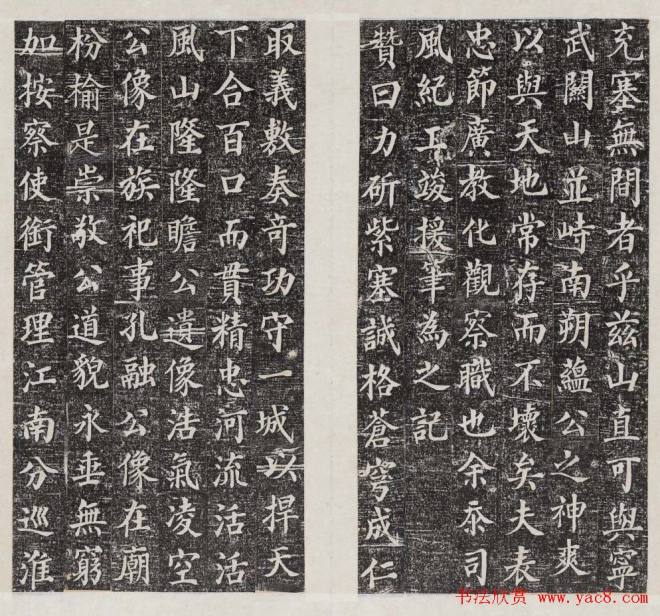 充塞無間者乎兹山直可與寧
武關山並峙南朔蘊公之神爽
以與天地常存而不壞矣夫表
忠節廣教化觀察職也余忝司
風紀工竣援筆為之記
贊曰力斫紫塞誠格蒼穹成仁
取義敷奏奇功守一城以捍天
下合百口而貫精忠河流活活
風山隆隆瞻公遺像浩氣凌空
公像在族祀事孔融公像在廟
枌榆是崇敬公道貌永垂無窮
加按察使銜管理江南分巡淮
书法欣赏 www.yac8.com